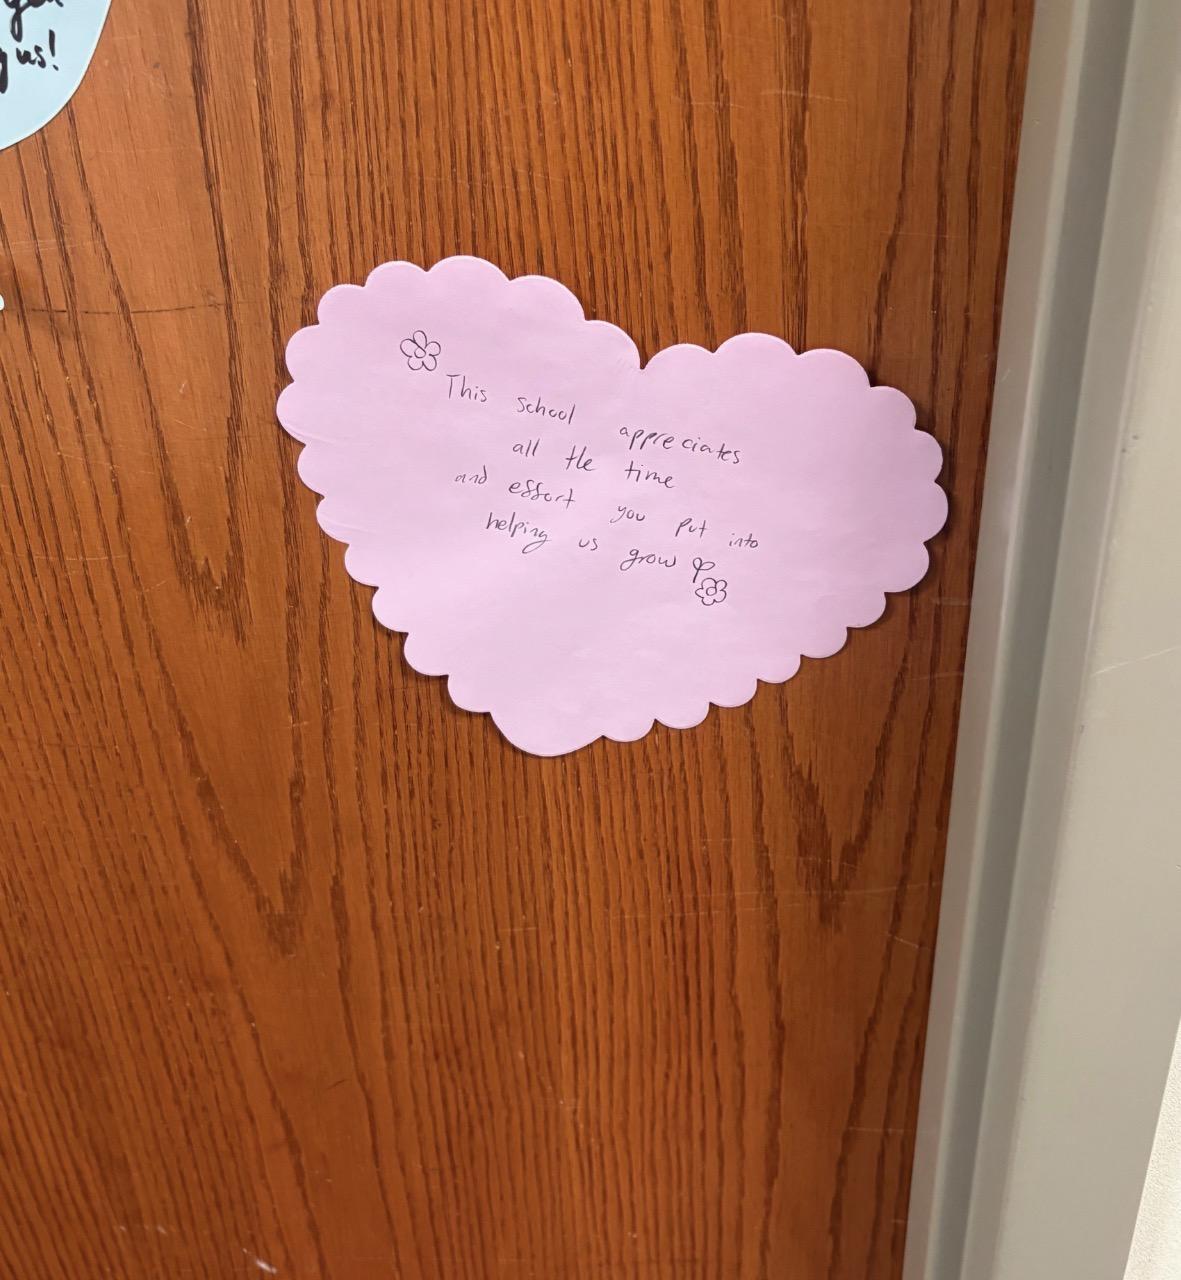 you
us!
This school appreciates
all the time
and effort you put into
helping us grow